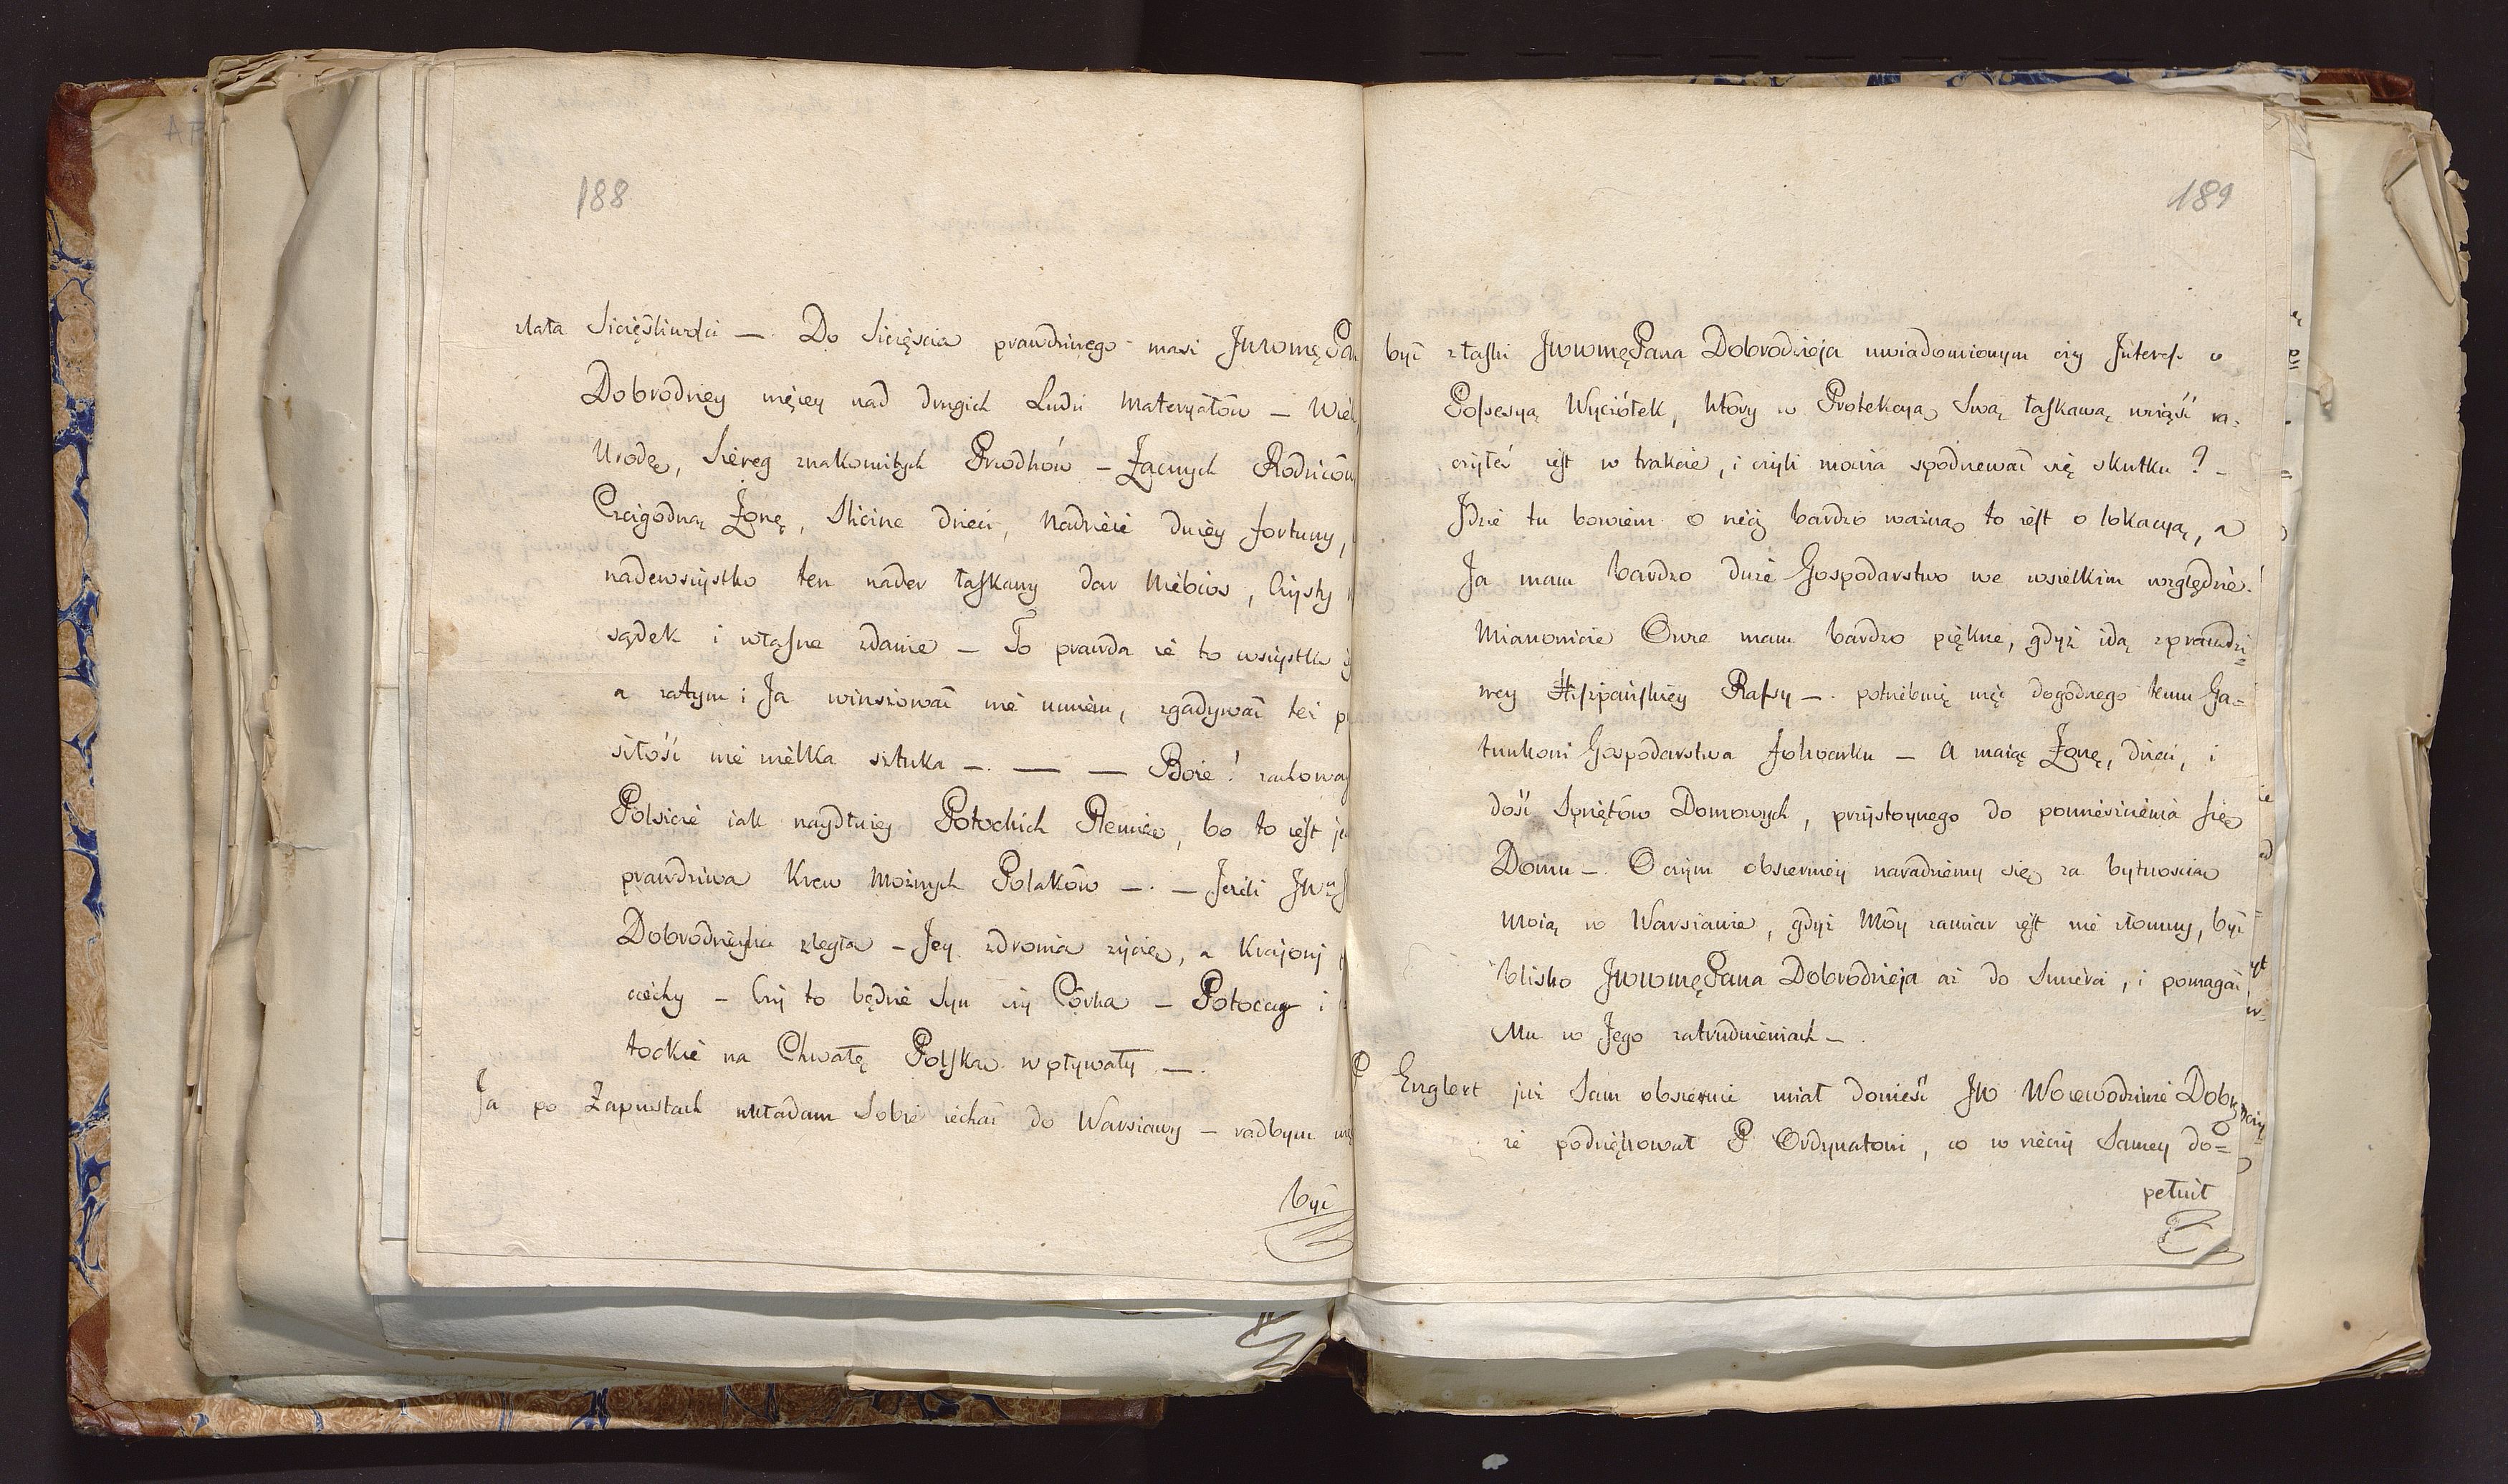 188
stała Sczęśliwości — Do Sczęścia prawdziwego masz JWWMę Pan
Dobrodziey więcey nad drugich Ludzi Materyałów — Wiek,
Urodę, Szereg znakomitych Przodków — Zacnych Rodziców
Czcigodną Żonę, śliczne dzieci, Nadzieie dużey fortuny,
nadewszystko ten nader łaskawy dar Niebios, Czysty
sądek i własne zdanie — To prawda że to wszystko
a zatym i Ja winszować nie umiem, zgadywać też
szłość nie wielka sztuka —. — — Boże! zachoway
Polszcze iak naydłużey Potockich Plemie, bo to iest
prawdziwa Krew Możnych Polaków —. — Jeżeli JW
Dobrodzieyka zległa — Jey zdrowia życzę, a Krajowi
ciechy — Czy to będzie Syn czy Córka — Potoccy i
tockie na Chwałę Polską wpływały —.
Ja po Zapustach układam Sobie iechać do Warszawy — radbym
być
189
być złaski JWWMę Pana Dobrodzieja uwiadomionym czy Interes o
Possesyą Wyciółek, który w Protekcyą Swą łaskawą wziąść ra-
czyłeś iest w trakcie, i czyli można spodziewać się skutku? —
Jdzie tu bowiem o rzecz bardzo ważną to iest o lokacyą, a
Ja mam bardzo duże Gospodarstwo we wszelkim względzie!
Mianowicie Owce mam bardzo piękne, gdyż idą zprawdzi=
wey Hiszpańskiey Rassy —. potrzebuię więc dogodnego temu Ga=
tunkowi Gospodarstwa folwarku — A maiąc Żonę, dzieci, i
dość Sprzętów Domowych, przystoynego do pomieszczenia się
Domu —. O czym obszerniey naradziemy się za bytnością
Moią w Warszawie, gdyż Móy zamiar iest nie złomny, być
blisko JWWMę Pana Dobrodzieja aż do Śmierci, i pomagać
Mu w Jego zatrudnieniach —.
P Englert już Sam obszernie miał donieść JW Woiewodzinie
że podziękował P Ordynatowi, co w rzeczy Samey do=
pełnił